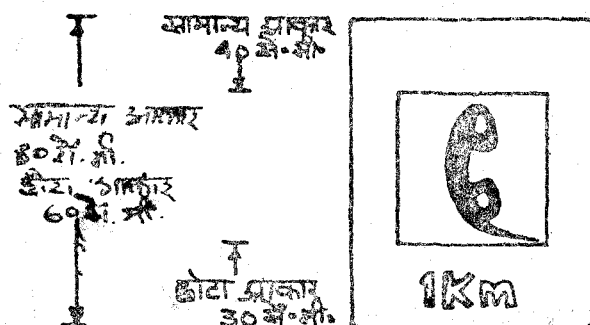 सामान्य आकार
40 से॰मी॰
सामान्य आकार
80 से. मी.
छोटा आकार
60 से. मी.
छोटा आकार
30 से॰मी॰
1Km